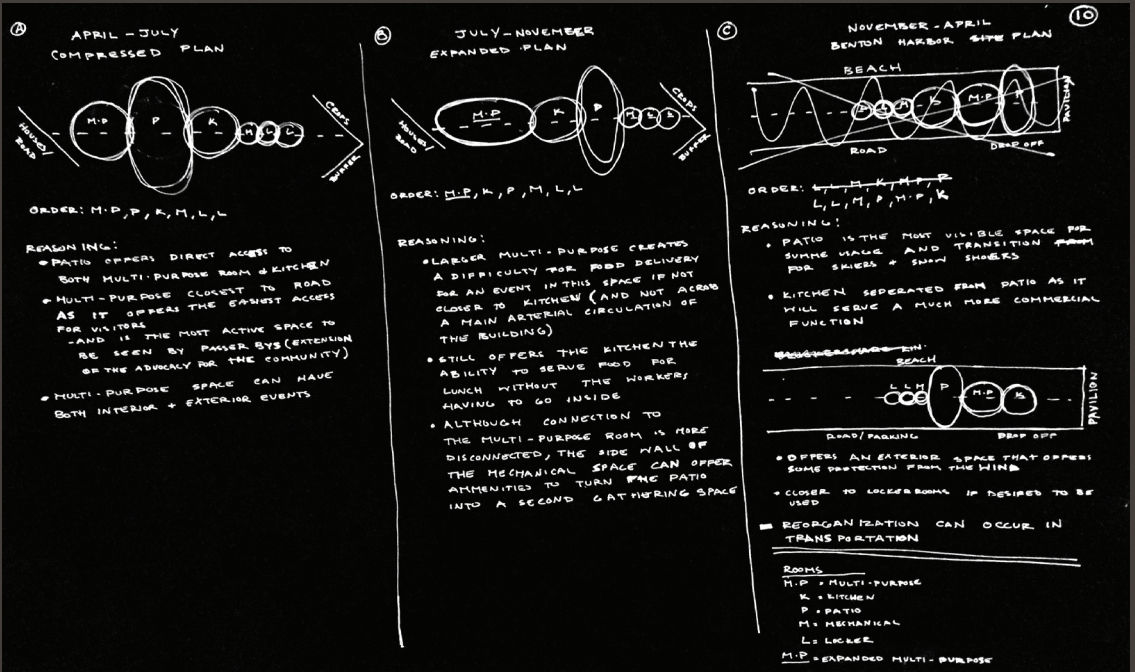 10
A
APRIL - JULY
COMPRESSED PLAN
HOUSES/
ROAD
M.P
P
K
M
L
L
CROPS
BUFFER
ORDER: M.P, P, K, M, L, L
REASONING:
• PATIO OFFERS DIRECT ACCESS TO
BOTH MULTI-PURPOSE ROOM & KITCHEN
• MULTI-PURPOSE CLOSEST TO ROAD
AS IT OFFERS THE EASIEST ACCESS
FOR VISITORS
- AND IS THE MOST ACTIVE SPACE TO
BE SEEN BY PASSER BYS (EXTENSION
OF THE ADVOCACY FOR THE COMMUNITY)
• MULTI-PURPOSE SPACE CAN HAVE
BOTH INTERIOR + EXTERIOR EVENTS
B
JULY - NOVEMBER
EXPANDED PLAN
HOUSES/
ROAD
M.P
K
P
M
L
L
CROPS
BUFFER
ORDER: M.P, K, P, M, L, L
REASONING:
• LARGER MULTI-PURPOSE CREATES
A DIFFICULTY FOR FOOD DELIVERY
FOR AN EVENT IN THIS SPACE IF NOT
CLOSER TO KITCHEN (AND NOT ACROSS
A MAIN ARTERIAL CIRCULATION OF
THE BUILDING)
• STILL OFFERS THE KITCHEN THE
ABILITY TO SERVE FOOD FOR
LUNCH WITHOUT THE WORKERS
HAVING TO GO INSIDE
• ALTHOUGH CONNECTION TO
THE MULTI-PURPOSE ROOM IS MORE
DISCONNECTED, THE SIDE WALL OF
THE MECHANICAL SPACE CAN OFFER
AMMENITIES TO TURN THE PATIO
INTO A SECOND GATHERING SPACE
C
NOVEMBER - APRIL
BENTON HARBOR SITE PLAN
BEACH
M
K
M.P
PAVILION
ROAD
DROP OFF
ORDER: L, L, M, K, M.P, P
L, L, M, P, M.P, K
REASONING:
• PATIO IS THE MOST VISIBLE SPACE FOR
SUMME USAGE AND TRANSITION FROM
FOR SKIERS + SNOW SHOERS
• KITCHEN SEPERATED FROM PATIO AS IT
WILL SERVE A MUCH MORE COMMERCIAL
FUNCTION
BEACH
L L M
P
M.P
K
PAVILION
ROAD/PARKING
DROP OFF
• OFFERS AN EXTERIOR SPACE THAT OFFERS
SOME PROTECTION FROM THE WIND
• CLOSER TO LOCKER ROOMS IF DESIRED TO BE
USED
- REORGANIZATION CAN OCCUR IN
TRANSPORTATION
ROOMS
M.P = MULTI-PURPOSE
K = KITCHEN
P = PATIO
M = MECHANICAL
L = LOCKER
M.P = EXPANDED MULTI-PURPOSE